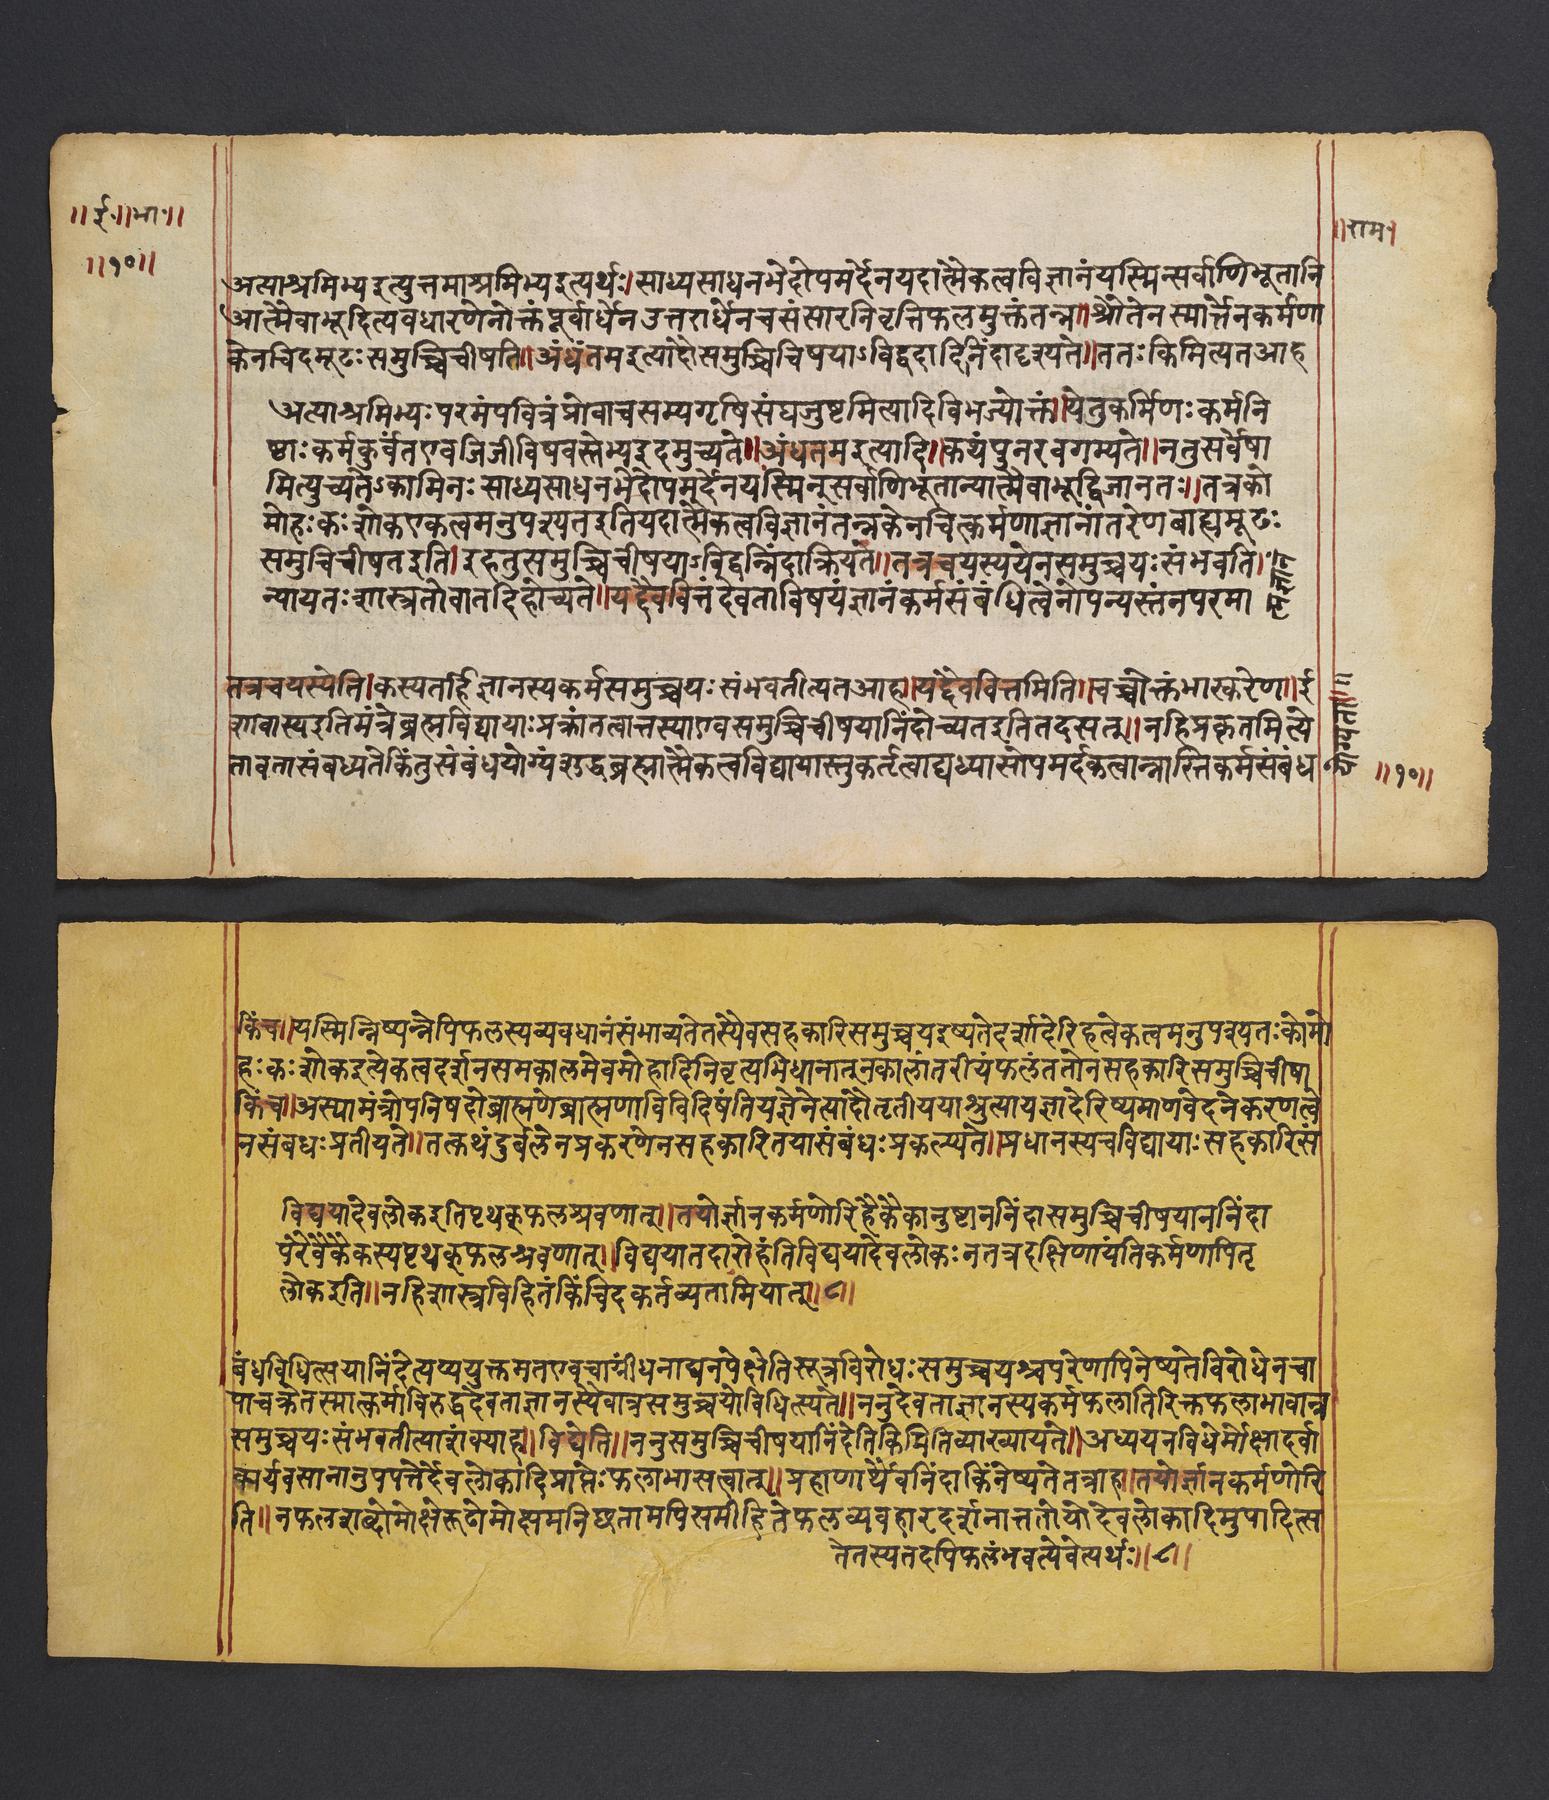 ॥ई॰॥भा॰॥
॥१०॥
॥राम॥
अत्याश्रमिभ्यइत्युत्तमाश्रमिभ्यइत्यर्थः॥साध्यसाधनभेदोपमर्देनयदात्मैकत्वविज्ञानंयस्मिन्सर्वाणिभूतानि
आत्मैवाभूदित्यवधारणेनोक्तंपूर्वार्धेनउत्तरार्धेनचसंसारनिवृत्तिफलमुक्तंतन्न॥श्रौतेनस्मार्त्तेनकर्मणा
केनचिदमूढःसमुच्चिचीषति॥अंधंतमइत्यादौसमुच्चिचिषयाऽविद्वदादिनिंदादृश्यते॥ततःकिमित्यतआह
अत्याश्रमिभ्यःपरमंपवित्रंप्रोवाचसम्यगृषिसंघजुष्टमित्यादिविभज्योक्तं॥येतुकर्मिणःकर्मनि
ष्ठाःकर्मकुर्वंतएवजिजीविषवस्तेभ्यइदमुच्यते॥अंधतमइत्यादि॥कथंपुनरवगम्यते॥नतुसर्वेषा
मित्युच्यतेऽकामिनःसाध्यसाधनभेदोपमर्देनयस्मिन्सर्वाणिभूतान्यात्मैवाभूद्विजानतः॥तत्रको
मोहःकःशोकएकत्वमनुपश्यतइतियदात्मैकत्वविज्ञानंतन्नकेनचित्कर्मणाज्ञानांतरेणबाह्यमूढः
समुचिचीषतइति॥इहतुसमुच्चिचीषयाऽविद्वन्निंदाक्रियते॥तत्रचयस्ययेनसमुच्चयःसंभवति॥
न्यायतःशास्त्रतोवातदिहोच्यते॥यद्दैवंवित्तंदेवताविषयंज्ञानंकर्मसंबंधित्वेनोपन्यस्तंनपरमा
त्मज्ञानं
तत्रचयस्येति॥कस्यतर्हिज्ञानस्यकर्मसमुच्चयःसंभवतीत्यतआह॥यद्दैवंवित्तमिति॥यच्चोक्तंभास्करेण॥ई
शावास्यइतिमंत्रेब्रह्मविद्यायाःप्रक्रांतत्वात्तस्याएवसमुच्चिचीषयानिंदोच्यतइतितदसत्॥नहिप्रकृतमित्ये
तावतासंबध्यतेकिंतुसंबंधयोग्यंशुद्धब्रह्मात्मैकत्वविद्यायास्तुकर्तृत्वाद्यध्यासोपमर्दकत्वान्नास्तिकर्मसंबंध
॥१०॥
किंच॥यस्मिन्निष्पन्नेपिफलस्यव्यवधानंसंभाव्यतेतस्यैवसहकारिसमुच्चयइष्यतेदर्शादेरिहत्वेकत्वमनुपश्यतःकोमो
हःकःशोकइत्येकत्वदर्शनसमकालमेवमोहादिनिवृत्यभिधानात्नकालांतरीयंफलंततोनसहकारिसमुच्चिचीषा
किंच॥अस्यामंत्रोपनिषदोब्राह्मणेब्राह्मणाविविदिषंतियज्ञेनेत्यादौतृतीययाश्रुत्यायज्ञादेरिष्यमाणवेदनेकरणत्वे
नसंबंधःप्रतीयते॥तत्कथंदुर्बलेनप्रकरणेनसहकारितयासंबंधःप्रकल्प्यते॥प्रधानस्यचविद्यायाःसहकारिसं
विद्ययादेवलोकइतिपृथक्फलश्रवणात्॥तयोर्ज्ञानकर्मणोरिहैकैकानुष्टाननिंदासमुच्चिचीषयाननिंदा
परैवैकैकस्यपृथक्फलश्रवणात्॥विद्ययातदारोहंतिविद्ययादेवलोकःनतत्रदक्षिणायंतिकर्मणापितृ
लोकइति॥नहिशास्त्रविहितंकिंचिदकर्तव्यतामियात्॥८॥
बंधविधित्सयानिंदेत्यप्ययुक्तमतएवचाग्नींधनाद्यनपेक्षेतिसूत्रविरोधःसमुच्चयश्चपरेणापिनेष्यतेविरोधेनचा
पाचक्रेतस्मात्कर्माविरुद्धदेवताज्ञानस्यैवात्रसमुच्चयोविधित्स्यते॥ननुदेवताज्ञानस्यकर्मफलातिरिक्तफलाभावान्न
समुच्चयःसंभवतीत्याशंक्याह॥विद्येति॥ननुसमुच्चिचीषयानिंदेतिकिमितिव्याख्यायते॥अध्ययनविधेर्मोक्षादर्वा
क्पर्यवसानानुपपत्तेर्देवलोकादिप्राप्तेःफलाभासत्वात्॥प्रहाणार्थैवनिंदाकिंनेष्यतेतत्राह॥तयोर्ज्ञानकर्मणोरि
ति॥नफलशब्दोमोक्षेरूढोमोक्षमनिष्ठतामपिसमीहितेफलव्यवहारदर्शनात्ततोयोदेवलोकादिमुपादित्स
तेतस्यतदपिफलंभवत्येवेत्यर्थः॥८॥